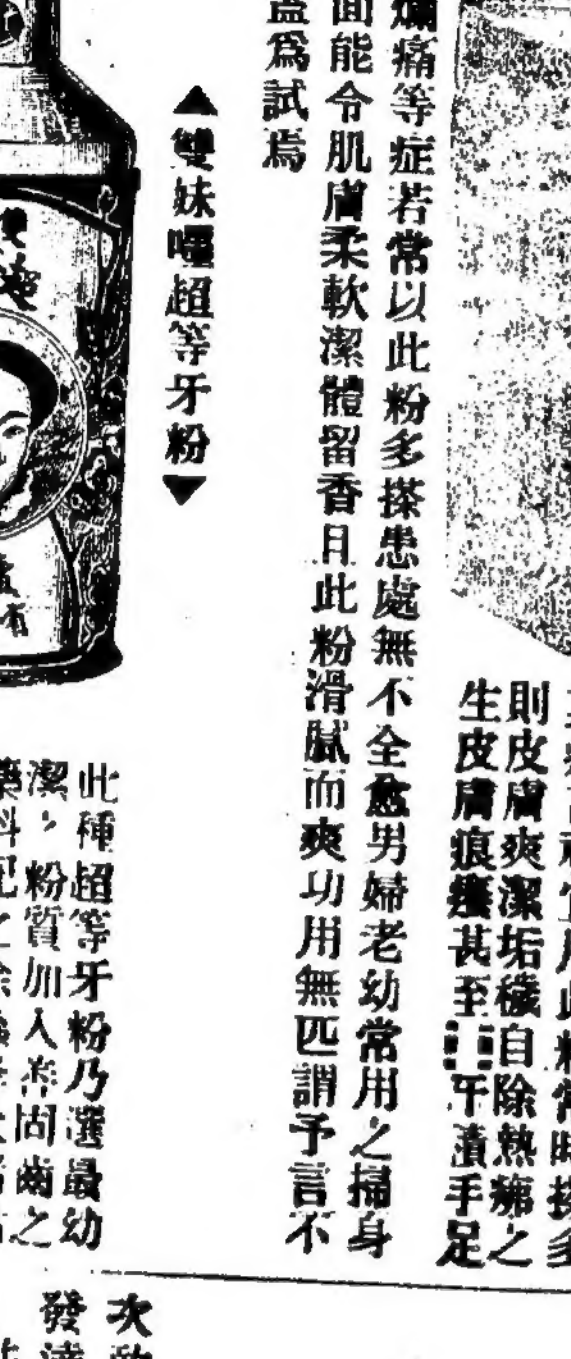 則皮膚爽潔垢穢自除熱痱之
生皮膚痕癢甚至
手足
爛痛等症若常以此粉多搽患處無不全愈男婦老幼常用之掃身
面能令肌膚柔軟潔體留香且此粉滑膩而爽功用無匹謂予言不
盍爲試焉
▲雙妹嚜超等牙粉▼
此種超等牙粉乃選最幼
潔，粉質加入善固齒之
藥料配之除
次
發達